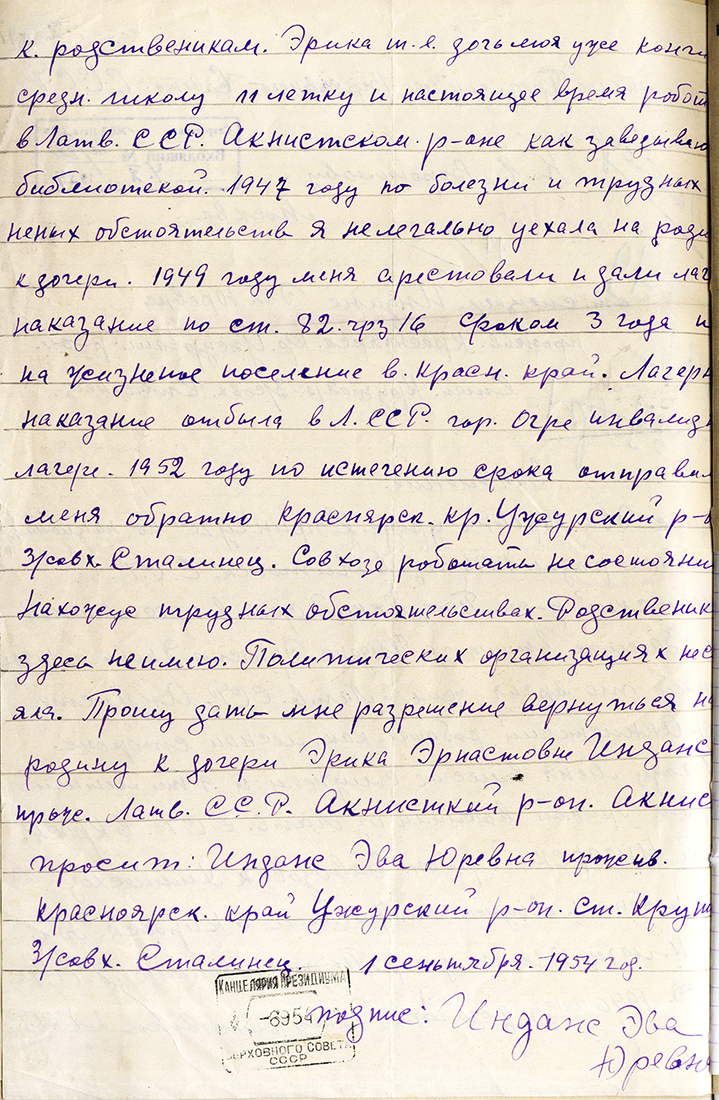 к. родственикам. Эрика т.е. дочь моя уже кончи
средн. школу 11 летку и настоящее время робот
в Латв. ССР. Акнистском р-оне как заведываю
библиотекой. 1947 году по болезни и трудных
неных обстоятельства я нелегально уехала на роди
к дочери. 1949 году меня арестовали и дали лаг
наказание по ст. 82. чрз 16 сроком 3 года и
на жизненое поселение в. Красн. край. Лагерн
наказание отбыла в Л. ССР. гор. Огре инвалидн
лагере. 1952 году по истечению срока отправил
меня обратно Красноярск. кр. Ужурский р-о
З/совх. Сталинец. Совхозе роботать не состояни
Нахожус трудных обстоятельствах. Родственик
здесь неимею. Политических организациях нес
яла. Прошу дать мне разрешение вернуться на
родину к дочери Эрика Эрнастовне Инданс
прож. Латв. СС.Р. Акнисткий р-он. Акнис
просит: Инданс Эва Юревна прожив.
Красноярск. край Ужурский р-он. ст. Крут
З/совх. Сталинец. 1 сеньтября. 1954 год.
КАНЦЕЛЯРИЯ ПРЕЗИДИУМА
подпис: Инданс Эва
Юревна
ВЕРХОВНОГО СОВЕТА
СССР